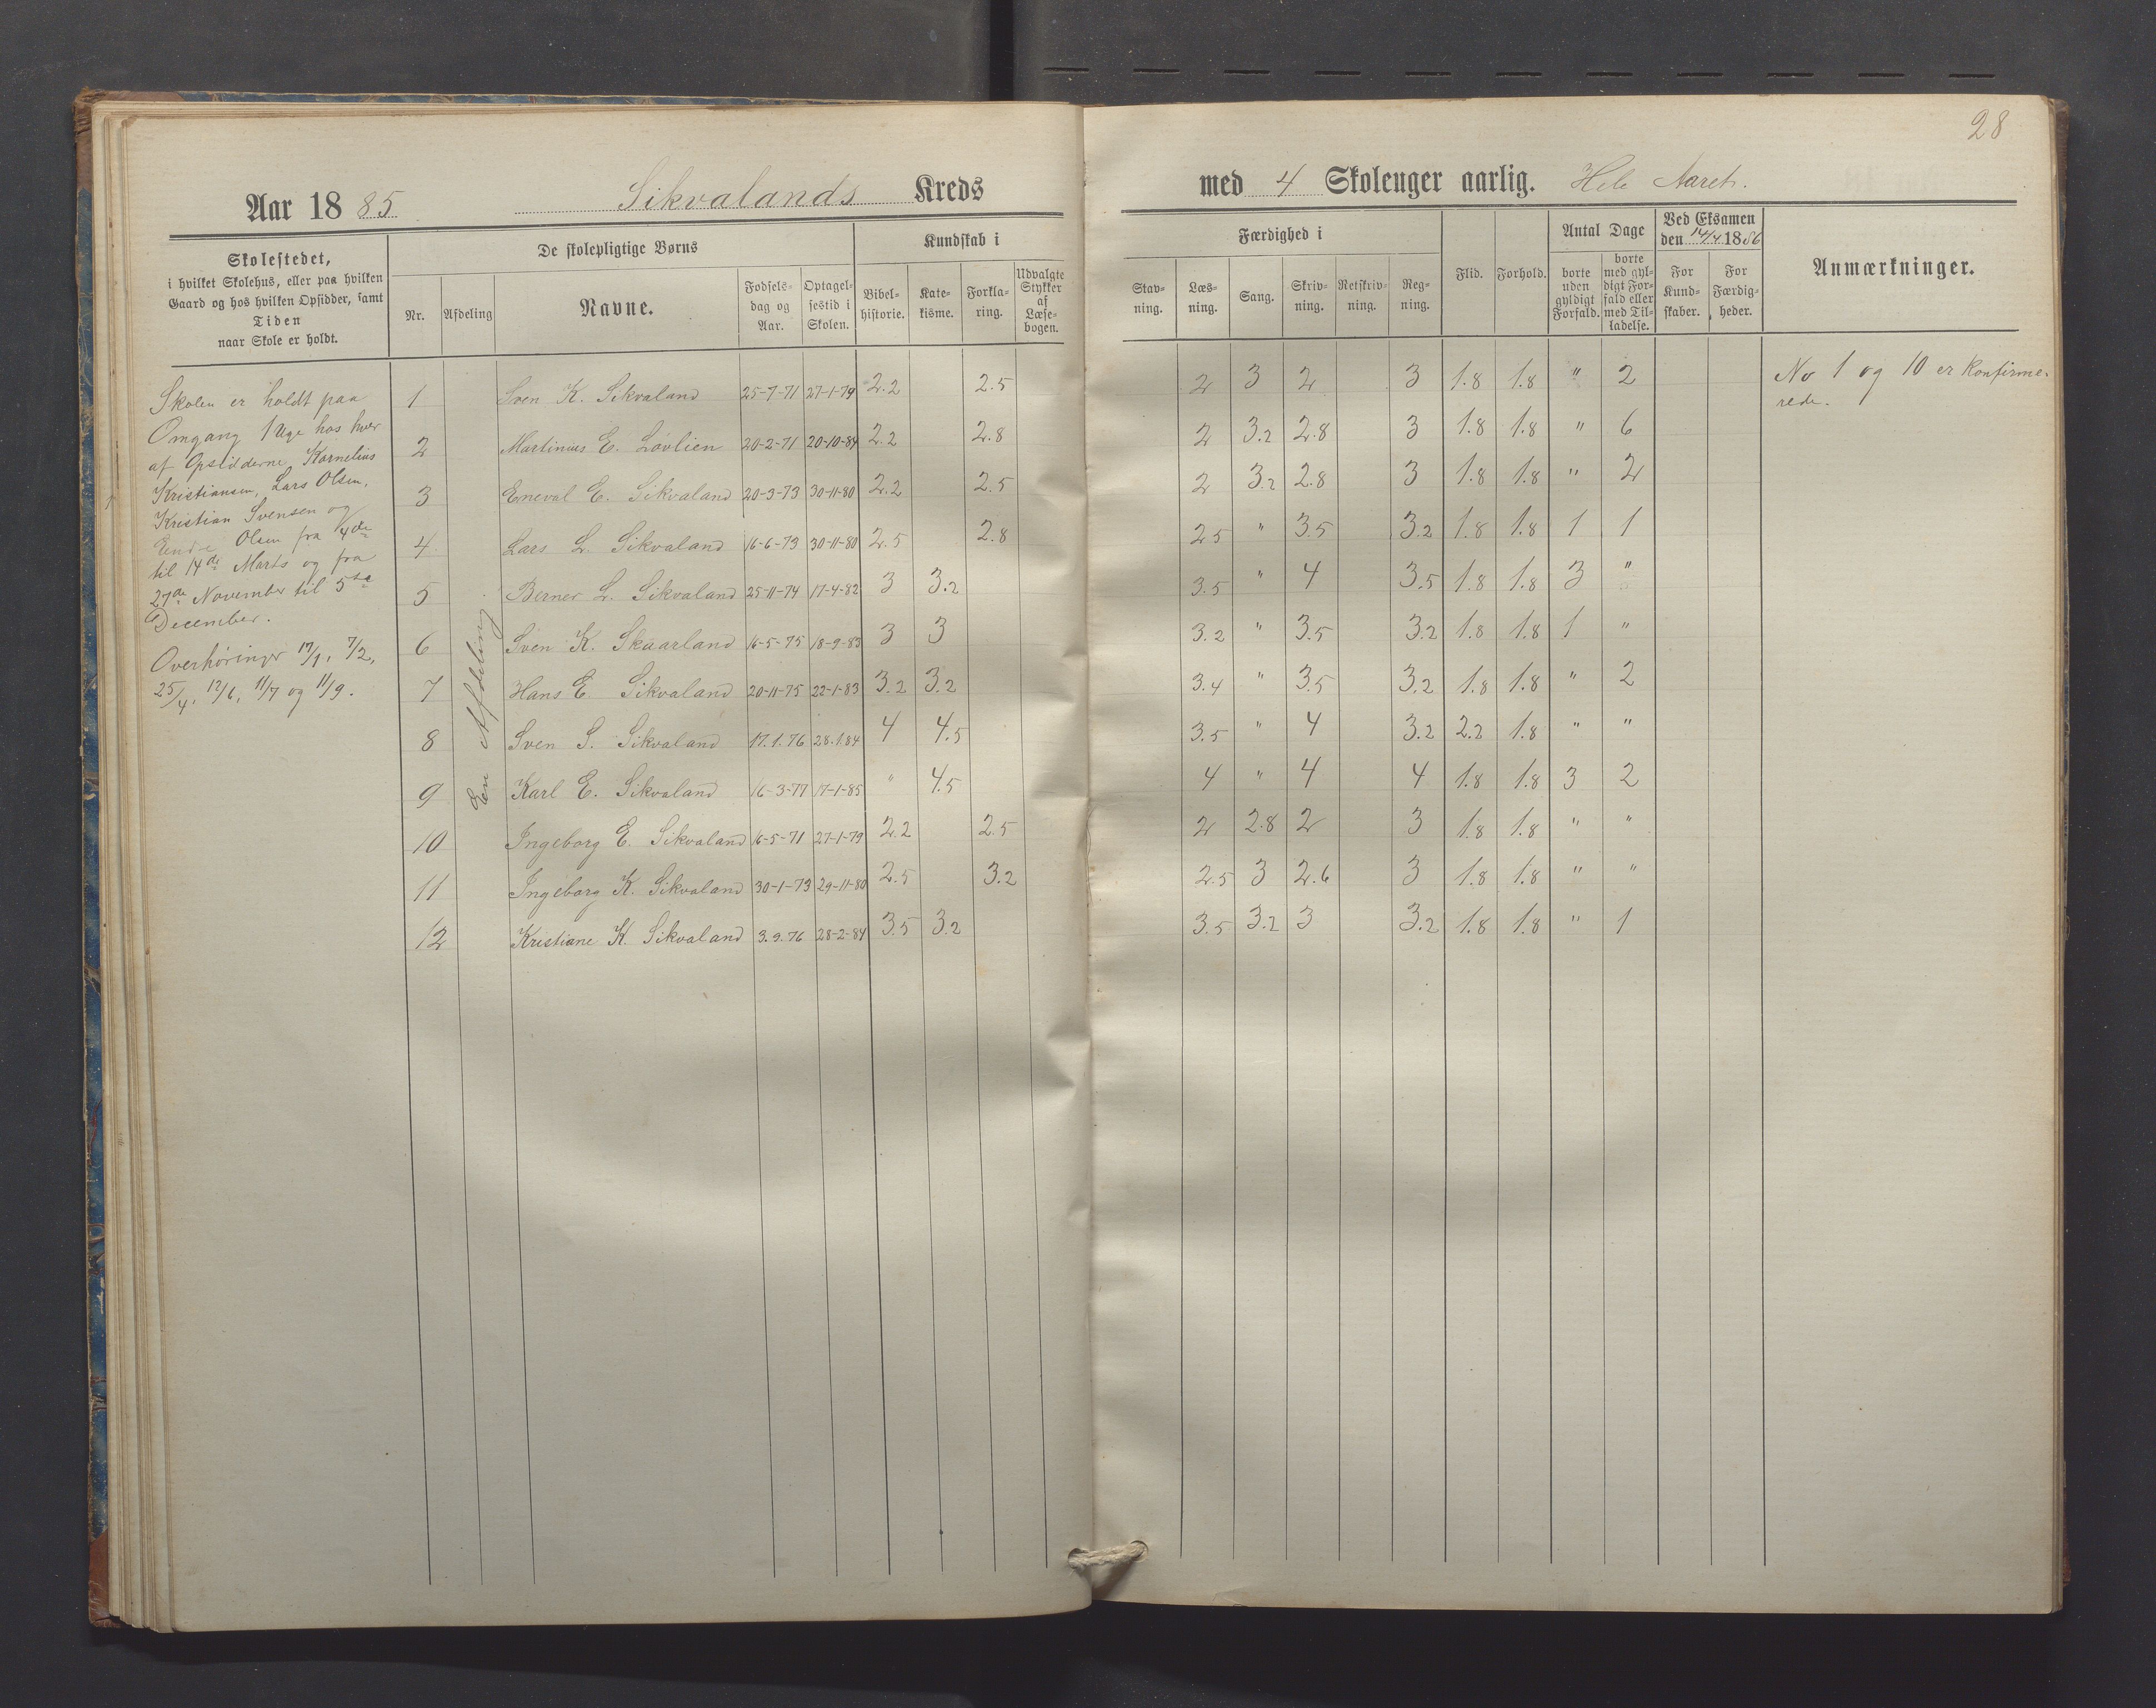 28
Aar 1885 Sikvalands Kreds med 4 Skoleuger aarlig. Hele Aaret.
Skolestedet,
i hvilket Skolehus, eller paa hvilken
Gaard og hos hvilken Opsidder, samt
Tiden
naar Skole er holdt.
De skolepligtige Børns
Nr.
Afdeling
Navne.
Fødsels-
dag og
Aar.
Optagel-
sestid i
Skolen.
Kundskab i
Bibel-
historie.
Kate-
kisme.
Forkla-
ring.
Udvalgte
Stykker
af
Læse-
bogen.
Færdighed i
Stav-
ning.
Læs-
ning.
Sang.
Skriv-
ning.
Retskriv-
ning.
Reg-
ning.
Flid.
Forhold.
Antal Dage
borte
uden
gyldigt
Forfald.
borte
med gyl-
digt For-
fald eller
med Til-
ladelse.
Ved Eksamen
den 14/4 1886
For
Kund-
skaber.
For
Færdig-
heder.
Anmærkninger.
Skolen er holdt paa
Omgang 1 Uge hos hver
af Opsidderne Kornelius
Kristiansen, Lars Olsen,
Kristian Svensen og
Olsen fra 4de
til 14de Marts og fra
27de November til 5te
December.
Overhøringer 17/1, 7/2,
25/4, 12/6, 11/7 og 11/9.
En Afdeling.
1 Sven K. Sikvaland 25-7-71 27-1-79 2.2 2.5 2 3 2 3 1.8 1.8 " 2
2 Martinius E. Løvlien 20-2-71 20-10-84 2.2 2.8 2 3.2 2.8 3 1.8 1.8 " 6
3 Eneval E. Sikvaland 20-3-73 30-11-80 2.2 2.5 2 3.2 2.8 3 1.8 1.8 " 2
4 Lars L. Sikvaland 16-6-73 30-11-80 2.5 2.8 2.5 " 3.5 3.2 1.8 1.8 1 1
5 Berner L. Sikvaland 25-11-74 17-4-82 3 3.2 3.5 " 4 3.5 1.8 1.8 3 "
6 Sven K. Skaarland 16-5-75 18-9-83 3 3 3.2 " 3.5 3.2 1.8 1.8 1 "
7 Hans E. Sikvaland 20-11-75 22-1-83 3.2 3.2 3.4 " 3.5 3.2 1.8 1.8 " 2
8 Sven S. Sikvaland 17.1.76 28.1.84 4 4.5 3.5 " 4 3.2 2.2 1.8 " "
9 Karl E. Sikvaland 16-3-77 17-1-85 " 4.5 4 " 4 4 1.8 1.8 3 2
10 Ingeborg E. Sikvaland 16-5-71 27-1-79 2.2 2.5 2 2.8 2 3 1.8 1.8 " "
11 Ingeborg K. Sikvaland 30-1-73 29-11-80 2.5 3.2 2.5 3 2.6 3 1.8 1.8 " "
12 Kristiane K. Sikvaland 3.9.76 28-2-84 3.5 3.2 3.5 3.2 3 3.2 1.8 1.8 " 1
No 1 og 10 er Konfirme-
rede.